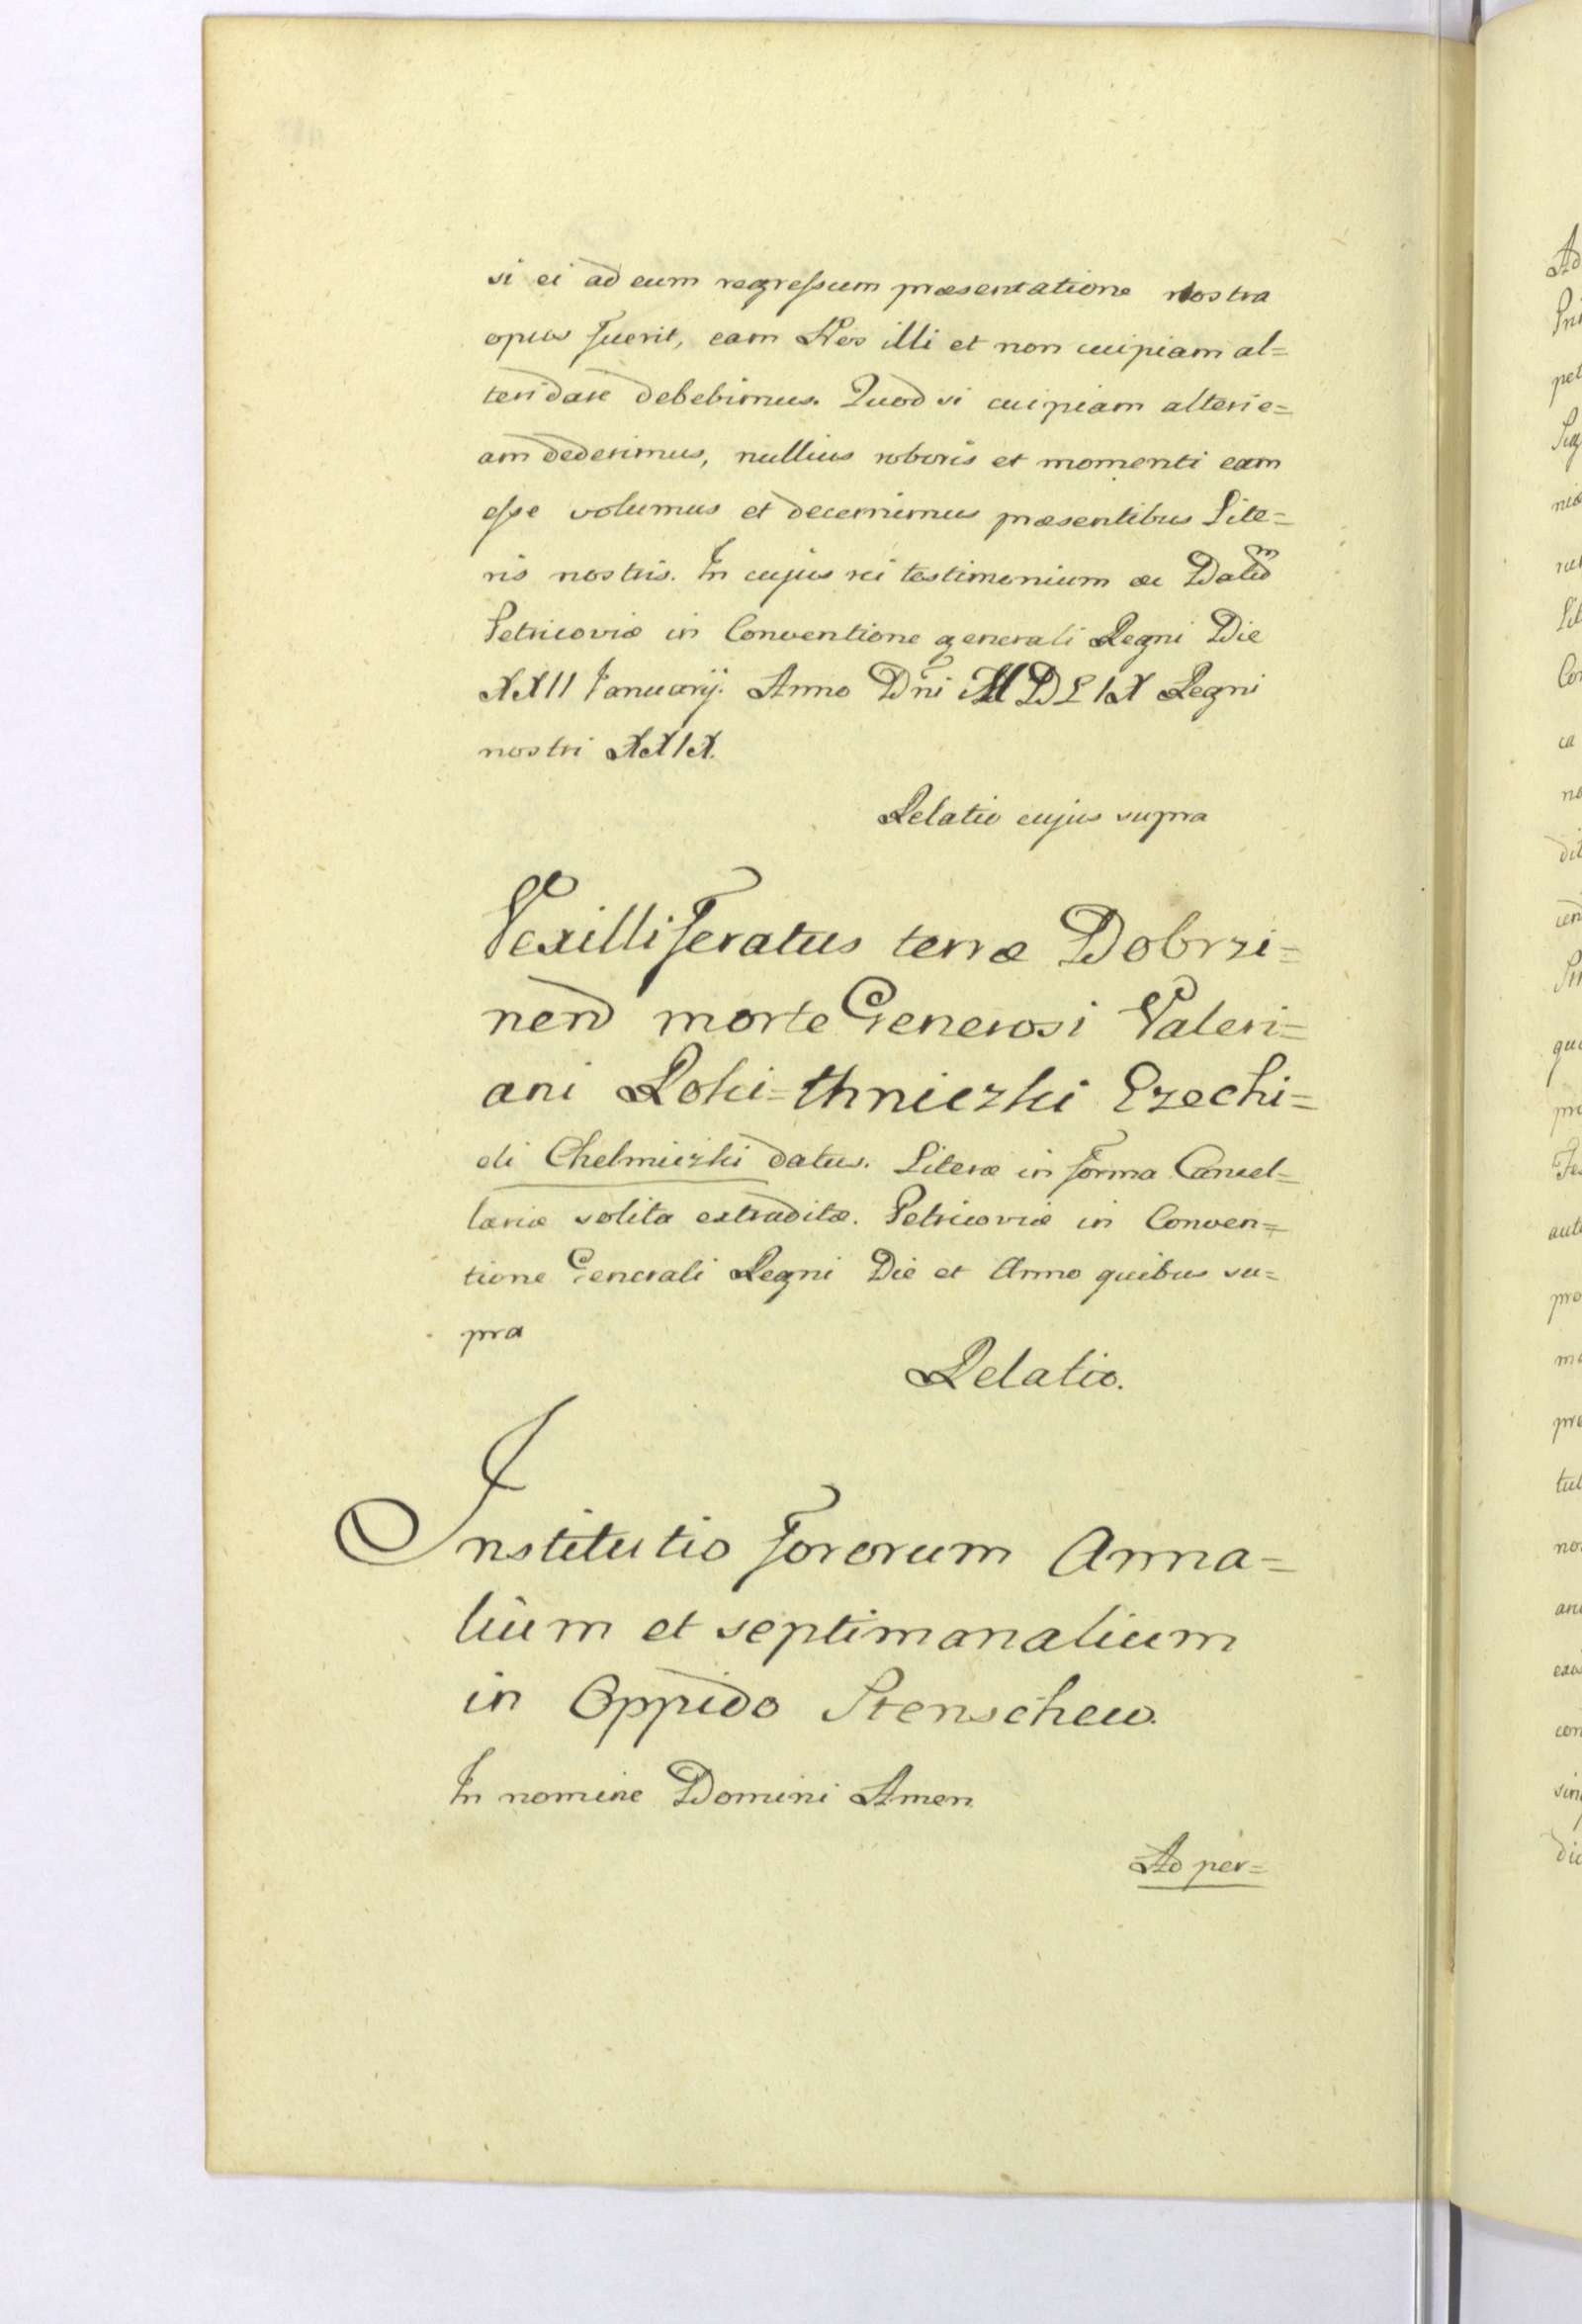 si ei ad eum regressum præsentatione nostra
opus fuerit, eam Nos illi et non cuipiam al=
teri dare debebimus. Quod si cuipiam alteri e=
am dederimus, nullius roboris et momenti eam
esse volumus et decernimus præsentibus Lite=
ris nostris. In cujus rei testimonium &c Datũ
Petricoviæ in Conventione generali Regni Die
XXII Januarij. Anno Dñi MDLIX Regni
nostri XXIX.
Relatio cujus supra
Vexilliferatus terræ Dobrzi=
nen̄ morte Generosi Valeri=
ani Roki=thniczki Ezechi=
eli Chelmiczki datus. Literæ in forma Cancel=
lariæ solita extraditæ. Petricoviæ in Conven=
tione Generali Regni Die et Anno quibus su=
pra
Relatio.
Institutio fororum Anna=
lium et septimanalium
in Oppido Stenschew.
In nomine Domini Amen
Ad per=